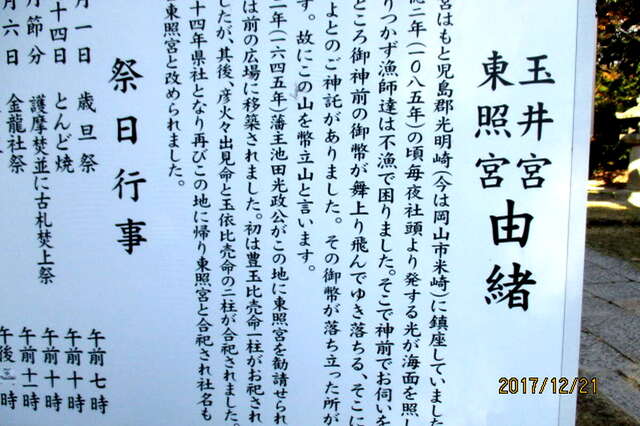 玉井宮
東照宮
由緒
宮はもと児島郡光明崎(今は岡山市米崎)に鎮座していました
二年(一〇八五年)の頃毎夜社頭より発する光が海面を照し
りつかず漁師達は不漁で困りました。そこで神前でお伺いを
ところ御神前の御幣が舞上り飛んでゆき落ちる、そこに
よとのご神託がありました。その御幣が落ち立った所が
す。故にこの山を幣立山と言います。
二年(一六四五年)藩主池田光政公がこの地に東照宮を勧請せられ
は前の広場に移築されました。初は豊玉比売命一柱がお祀され
したが、其後、彦火々出見命と玉依比売命の二柱が合祀されました。
十四年県社となり再びこの地に帰り東照宮と合祀され社名も
東照宮と改められました。
祭日行事
月一日 歳旦祭 午前七時
十四日 とんど焼 午前十時
月節分 護摩焚並に古札焚上祭 午前十時
月六日 金龍社祭 午前十一時
午後三時
2017/12/21